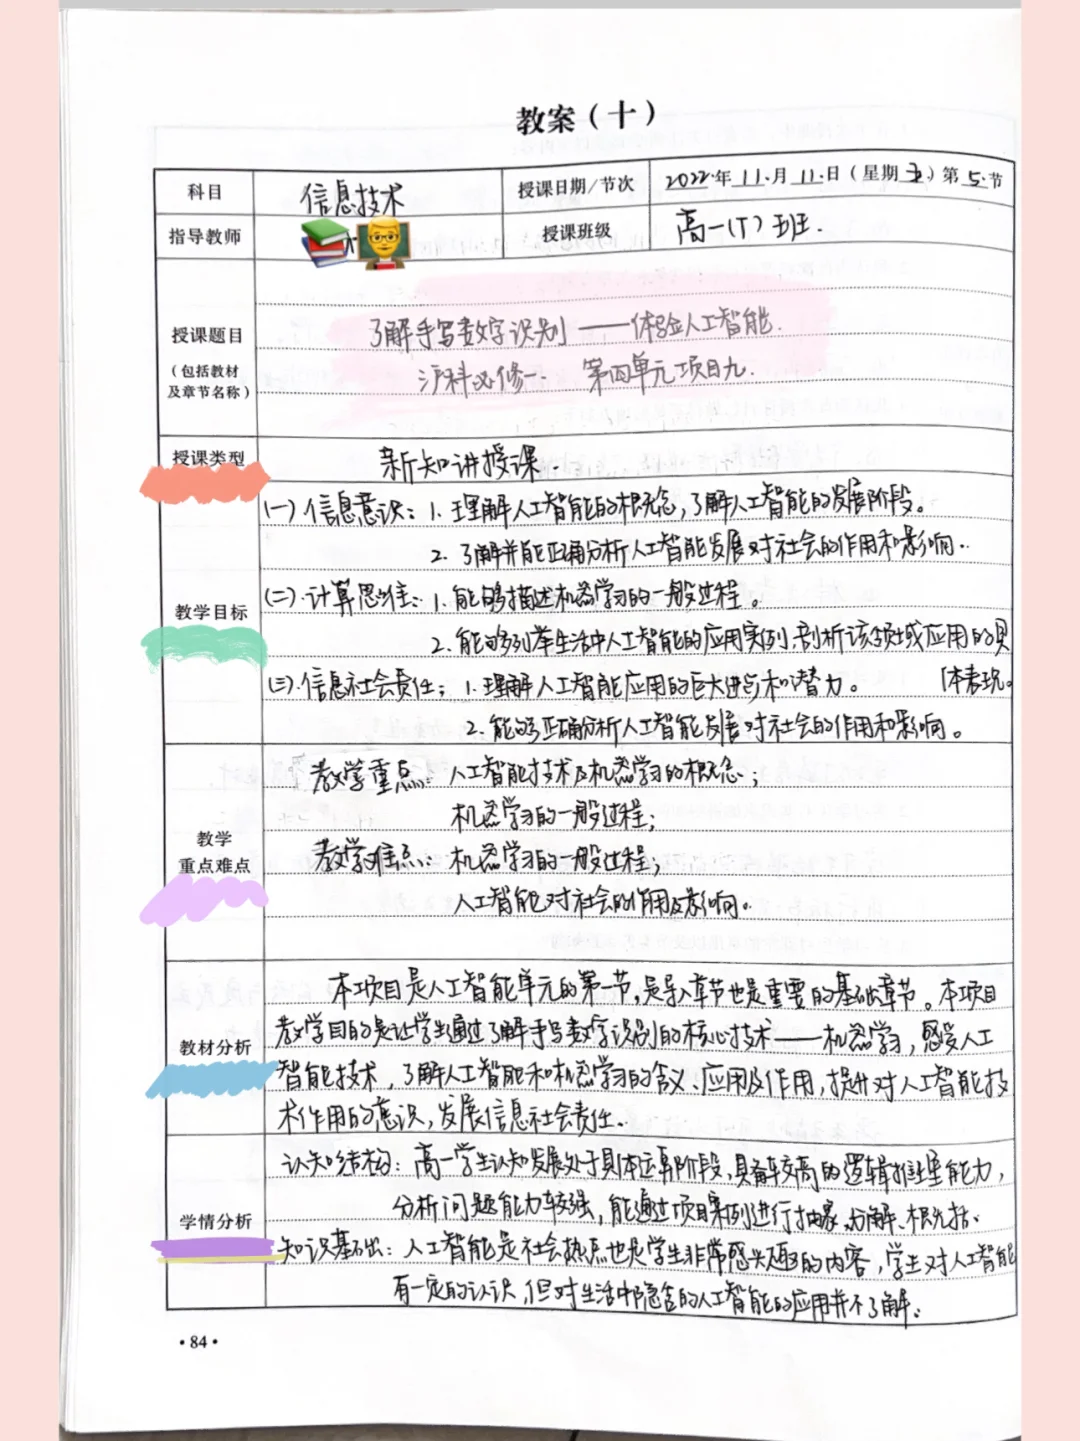 教案（十）
科目 信息技术 授课日期/节次 2022年11月11日（星期五）第5节
指导教师 授课班级 高一(7)班.
授课题目 了解手写数字识别——体验人工智能.
（包括教材及章节名称） 沪科必修一 第四单元项目九.
授课类型 新知讲授课.
教学目标
(一)信息意识：1.理解人工智能的概念，了解人工智能的发展阶段。
2.了解并能正确分析人工智能发展对社会的作用和影响.
(二)计算思维：1.能够描述机器学习的一般过程。
2.能够列举生活中人工智能的应用实例,剖析该领域应用的具
体表现。
(三)信息社会责任：1.理解人工智能应用的巨大进步和潜力。
2.能够正确分析人工智能发展对社会的作用和影响。
教学重点难点
教学重点：人工智能技术及机器学习的概念；
机器学习的一般过程；
教学难点：机器学习的一般过程；
人工智能对社会的作用及影响。
教材分析
本项目是人工智能单元的第一节,是导入章节也是重要的基础章节。本项目
教学目的是让学生通过了解手写数字识别的核心技术——机器学习，感受人工
智能技术，了解人工智能和机器学习的含义、应用及作用，提升对人工智能技
术作用的意识，发展信息社会责任.
学情分析
认知结构：高一学生认知发展处于具体运算阶段，具备较高的逻辑推理能力，
分析问题能力较强，能通过项目案例进行抽象、分解、概括.
知识基础：人工智能是社会热点也是学生非常感兴趣的内容，学生对人工智能
有一定的认识，但对生活中隐含的人工智能的应用并不了解.
·84·